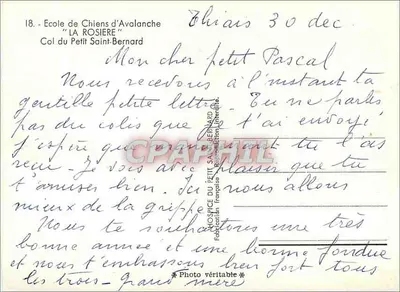 18. - Ecole de Chiens d'Avalanche
"LA ROSIERE"
Col du Petit Saint-Bernard
Thiais 30 dec.
Mon cher petit Pascal
Nous recevons à l'instant ta
gentille petite lettre. Tu ne parles
pas du colis que je t'ai envoyé
j'espère que maintenant tu l'as
reçu. Je vois avec plaisir que tu
t'amuses bien. Ici nous allons
mieux de la grippe
Nous te souhaitons une très
bonne année et une bonne fondue
et nous t'embrassons bien fort tous
les trois - grand mère
* Photo véritable *
HOSPICE DU PETIT SAINT-BERNARD
Fabrication française
CPAPHIL